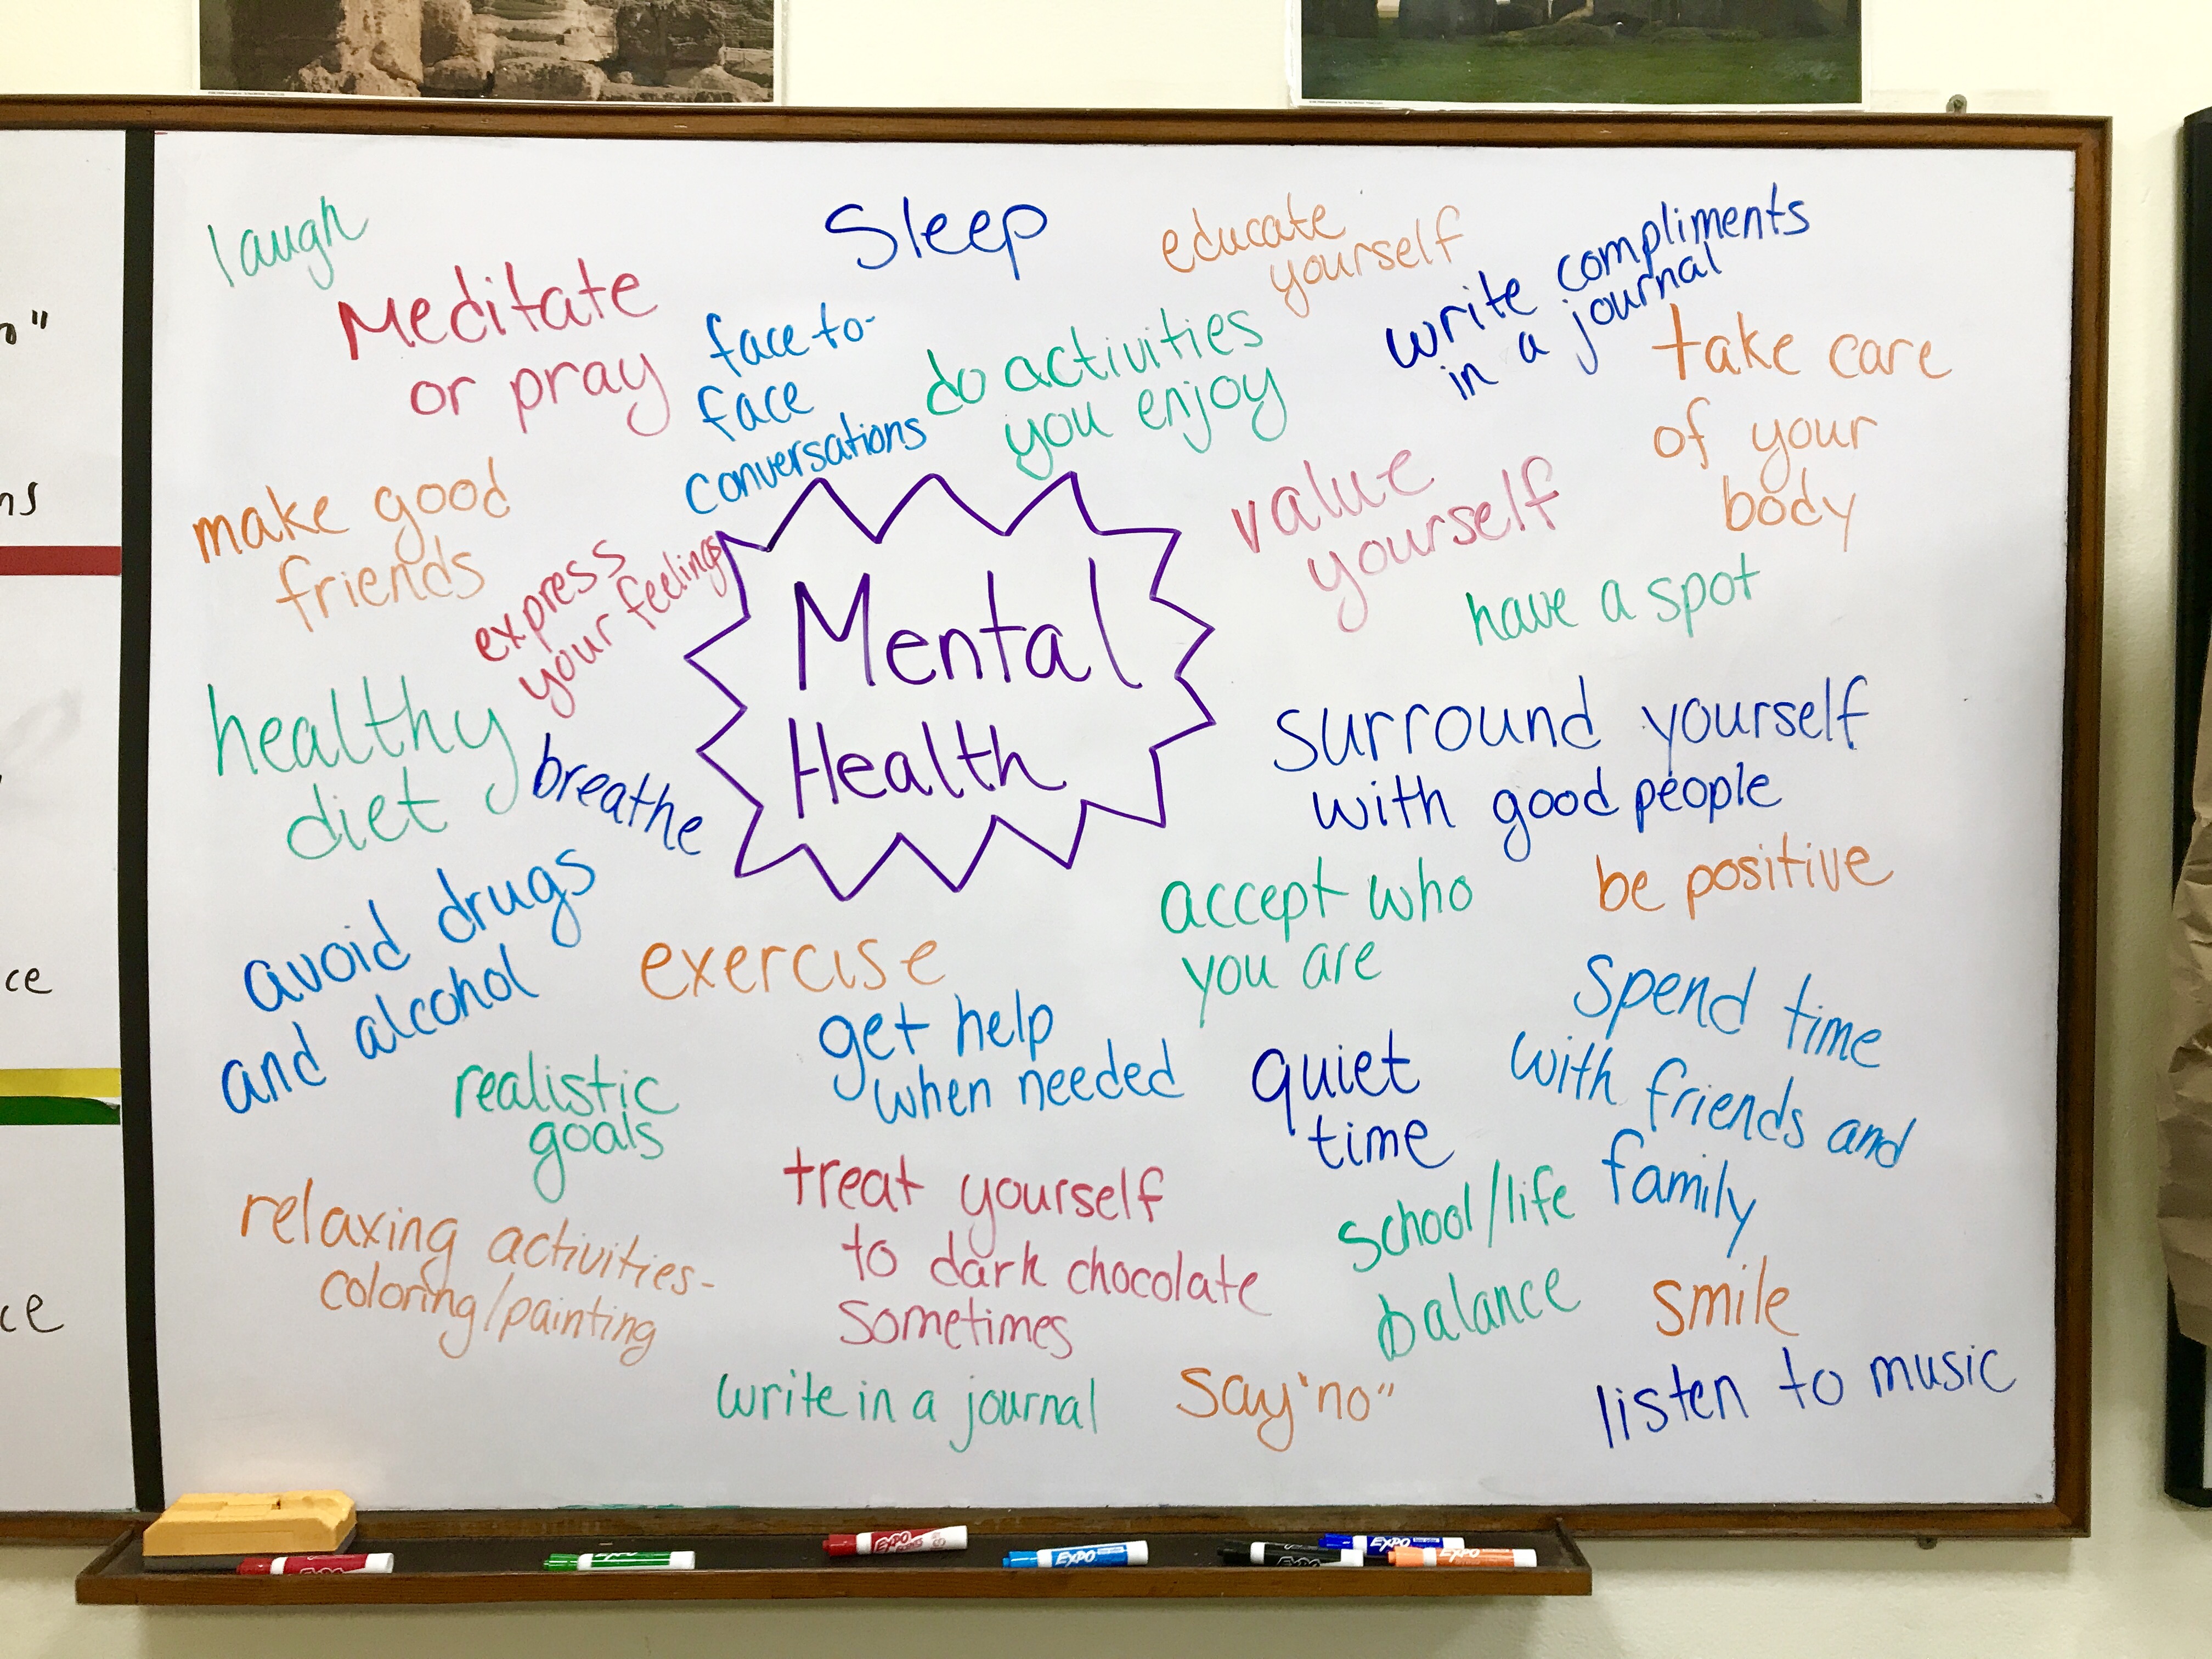 laugh
Meditate
or pray
Sleep
educate
yourself
write compliments
in a journal
face-to-
face
conversations
do activities
you enjoy
take care
of your
body
make good
friends
express
your feelings
value
yourself
have a spot
Mental
Health
healthy
diet
breathe
surround yourself
with good people
avoid drugs
and alcohol
exercise
accept who
you are
be positive
get help
when needed
quiet
time
spend time
with friends and
family
realistic
goals
treat yourself
to dark chocolate
sometimes
school/life
balance
relaxing activities-
coloring/painting
smile
write in a journal
say "no"
listen to music
ns
ce
ce
EXPO
EXPO
EXPO
EXPO
EXPO